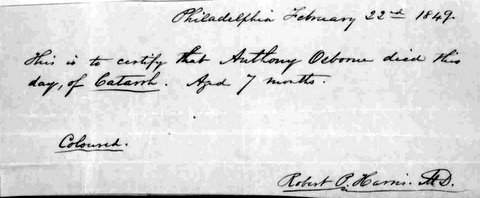 Philadelphia February 22nd 1849.
This is to certify that Anthony Osborne died this
day, of Catarrh. Aged 7 months.
Coloured.
Robert P. Harris. M.D.